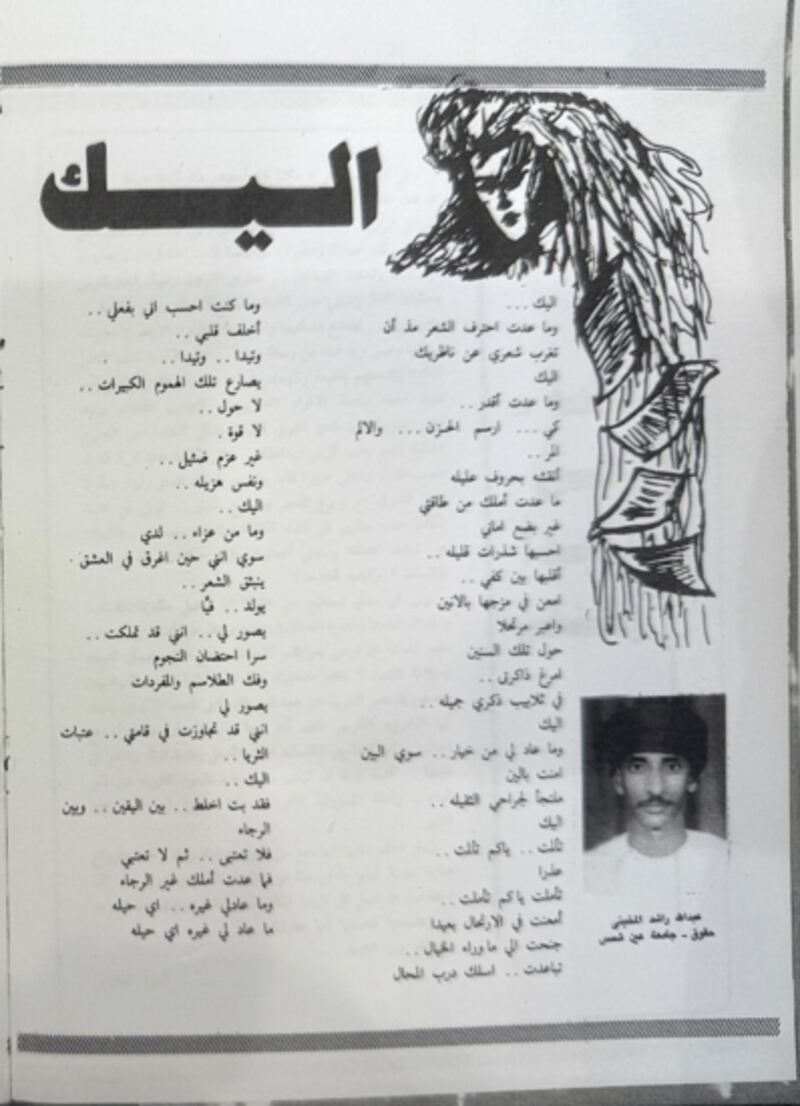 اليك
اليك ...
وما عدت احترف الشعر مذ أن
تغرب شعري عن ناظريك
اليك
وما عدت أقدر ..
كي ... ارسم الحزن ... والالم
المر ..
أنقشه بحروف عليله
ما عدت أملك من طاقتي
غير بضع اماني
احسبها شذرات قليله ..
أقلبها بين كفي ..
امعن في مزجها بالانين
واعبر مرتحلا
حول تلك السنين
امرغ ذاكرتي ..
في تلابيب ذكري جميله ..
اليك
وما عاد لي من خيار .. سوي البين
امنت بالبن
ملتجأ لجراحي الثقيله ..
اليك
تألت .. ياكم تألت ..
عذرا
تأملت ياكم تأملت ..
أمعنت في الارتحال بعيدا
جنحت الي ماوراء الخيال ..
تباعدت .. اسلك درب المحال
وما كنت احسب اني بفعلي ..
أخلف قلبي ..
وئيدا .. وئيدا ..
يصارع تلك الهموم الكبيرات ..
لا حول ..
لا قوة .
غير عزم ضئيل ..
ونفس هزيله ..
اليك ..
وما من عزاء .. لدي
سوي انني حين اغرق في العشق .
ينبثق الشعر ..
يولد .. فيّا
يصور لي .. انني قد تملكت ..
سرا احتضان النجوم
وفك الطلاسم والمفردات
يصور لي
انني قد تجاوزت في قامتي .. عتبات
الثريا ..
اليك ..
فقد بت اخلط .. بين اليقين .. وبين
الرجاء
فلا تعتبى .. ثم لا تعتبي
فما عدت أملك غير الرجاء
وما عادلي غيره .. اي حيله
ما عاد لي غيره اي حيله
عبدالله راشد
حقوق - جامعة عين شمس